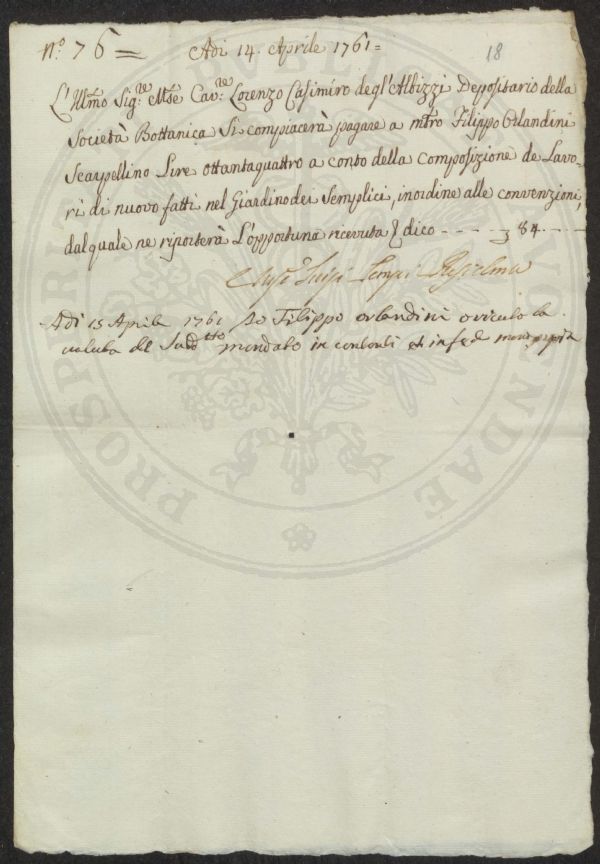 N.º 76= Adi 14. Aprile 1761= 18
L'Ill̃mo Sig.re Mse Cav.re Lorenzo Casimiro degl'Albizzi Depositario della
Società Bottanica Si compiacerà pagare a mtro Filippo Orlandini
Scarpellino Lire ottantaquattro a conto della composizione de Lavo-
ri di nuovo fatti nel Giardino dei Semplici, in ordine alle convenzioni,
dal quale ne riporterà L'opportuna ricevuta dico ---- 84.---
Luigi
Adi 15 Aprile 1761 Io Filippo Orlandini o riceuto la
valuta del Sudtto mandato in contanti et in fede mano propia
PROSPERITATI PVBLICAE AVGENDAE